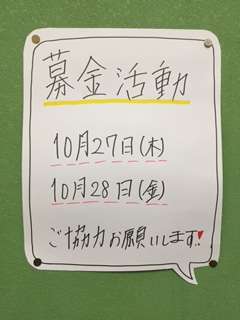 募金活動
10月27日(木)
10月28日(金)
ご協力お願いします!